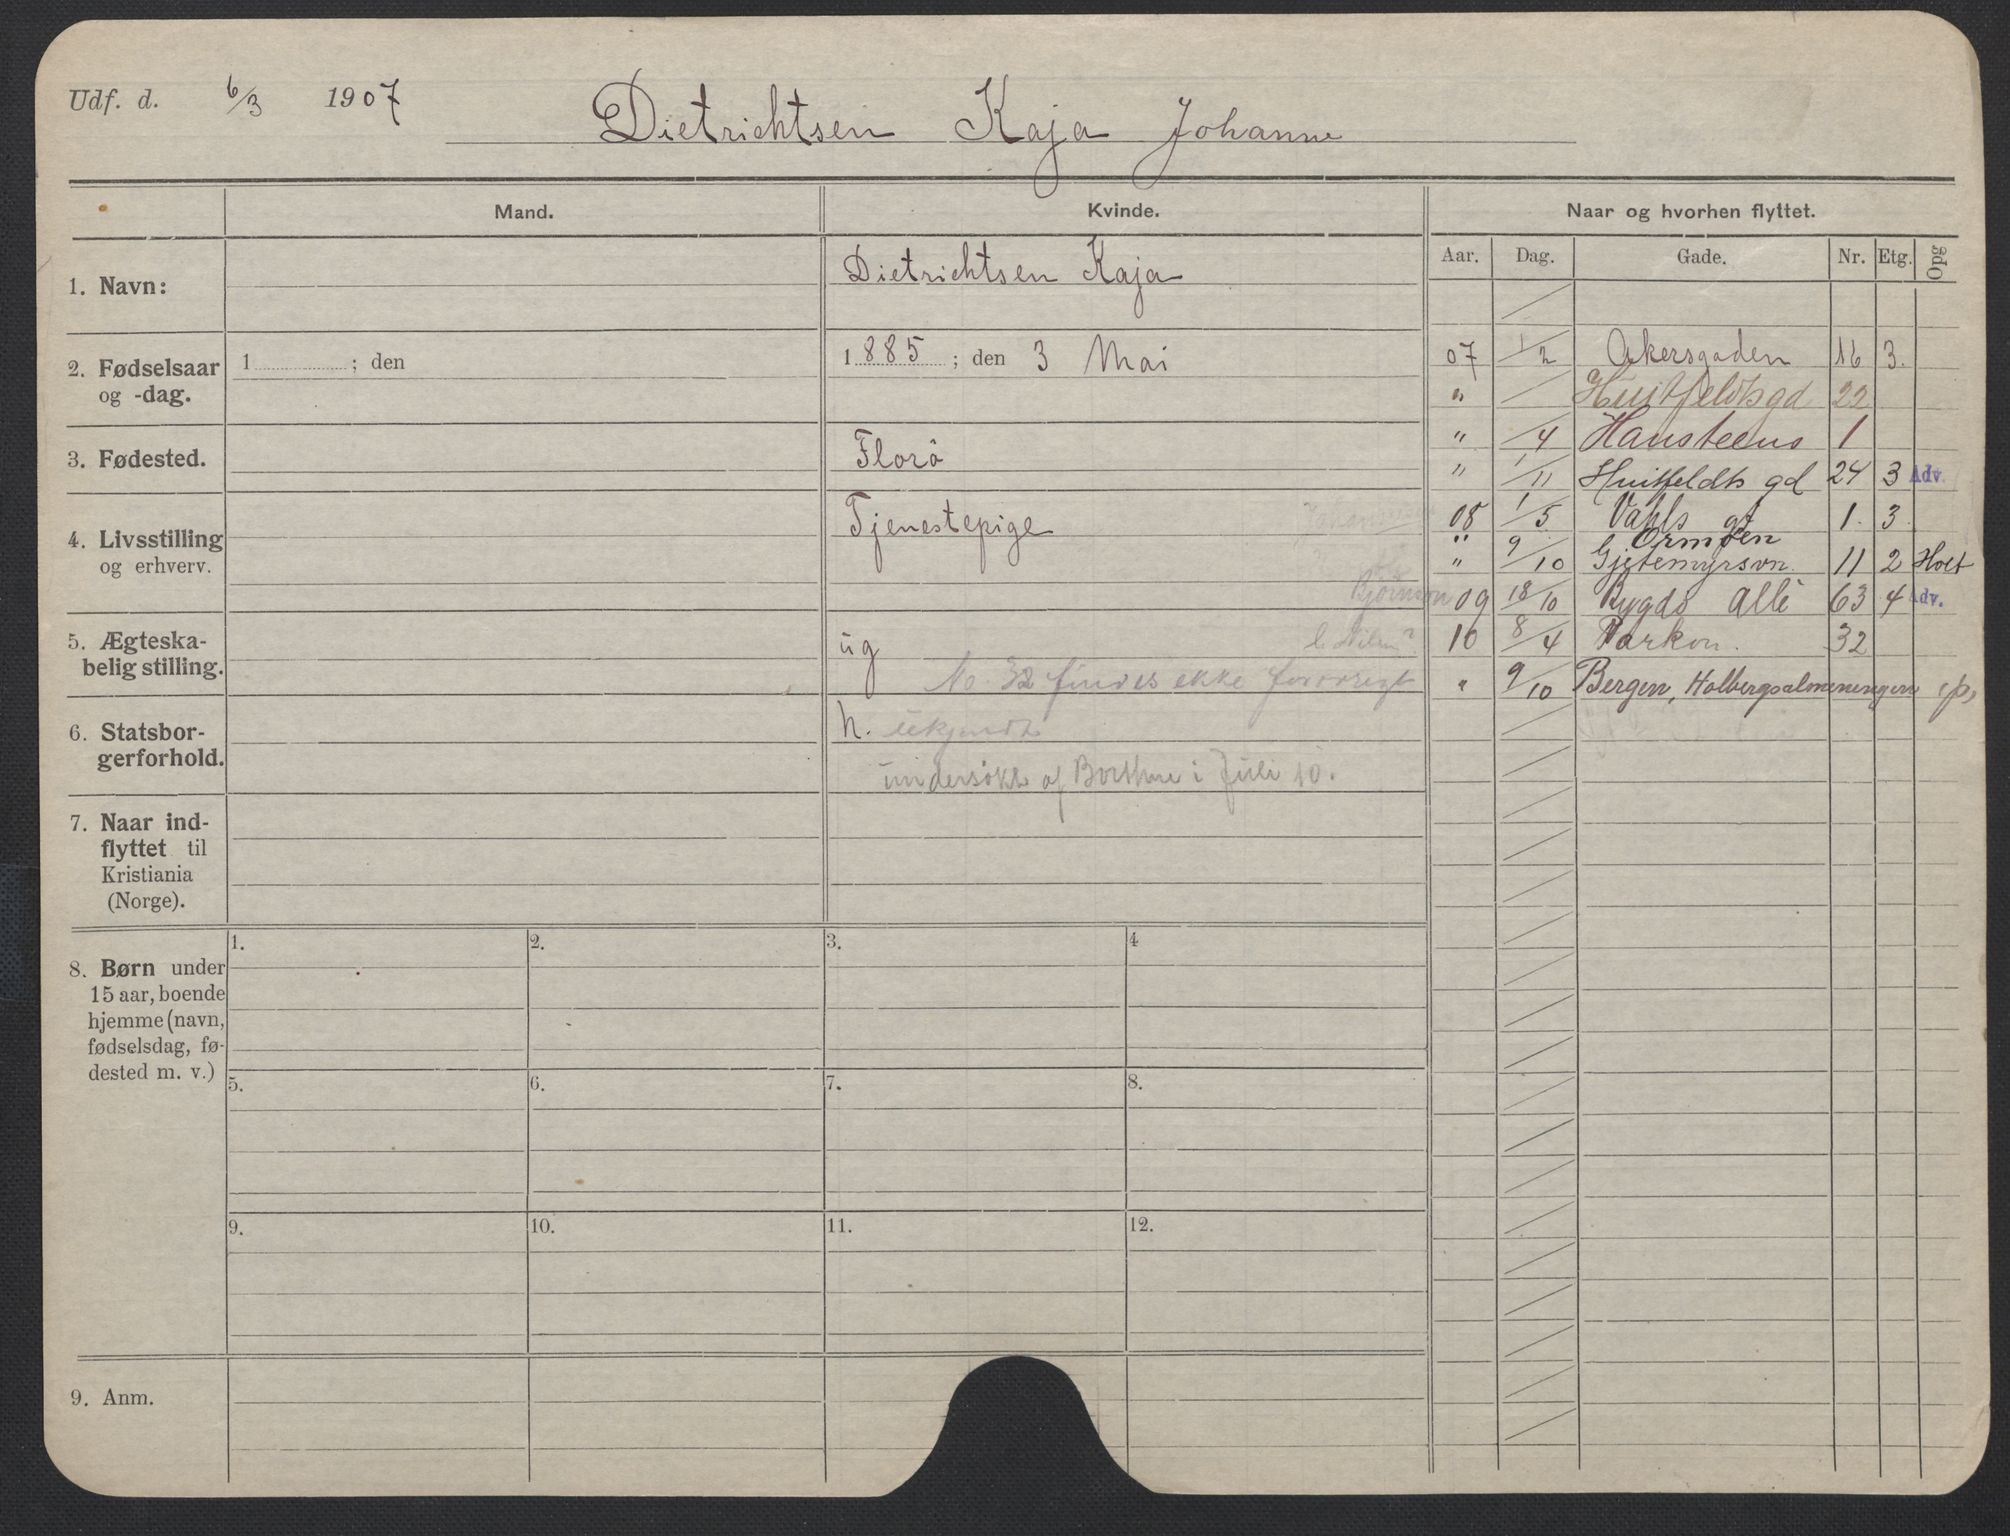 Udf. d. 6/3 1907 Dietrichtsen Kaja Johanne
Mand. Kvinde. Naar og hvorhen flyttet.
Aar. Dag. Gade. Nr. Etg. Opg
1. Navn: Dietrichtsen Kaja
2. Fødselsaar og -dag. 1 ; den 1885 ; den 3 Mai
3. Fødested. Florö
4. Livsstilling og erhverv. Tjenestepige
5. Ægteskabelig stilling. ug
No. 32 findes ekke forøvrigt
6. Statsborgerforhold. N. ukjendt
undersøkt af Borthne i Juli 10.
7. Naar indflyttet til Kristiania (Norge).
8. Børn under 15 aar, boende hjemme (navn, fødselsdag, fødested m. v.)
1. 2. 3. 4
5. 6. 7. 8.
9. 10. 11. 12.
9. Anm.
07 1/2 Akersgaden 16 3.
" / Huitfeldtsgd 22
" /4 Hansteens 1
" 1/11 Huitfeldts gd 24 3 Adv.
08 1/5 Vahls gt 1. 3.
" Ormøen
" 9/10 Gjetemyrsvn. 11 2 Holt
Bjørnson 09 18/10 Bygdö Allé 63 4 Adv.
10 8/4 Parkvn. 32
" 9/10 Bergen, Holbergsalmenningen